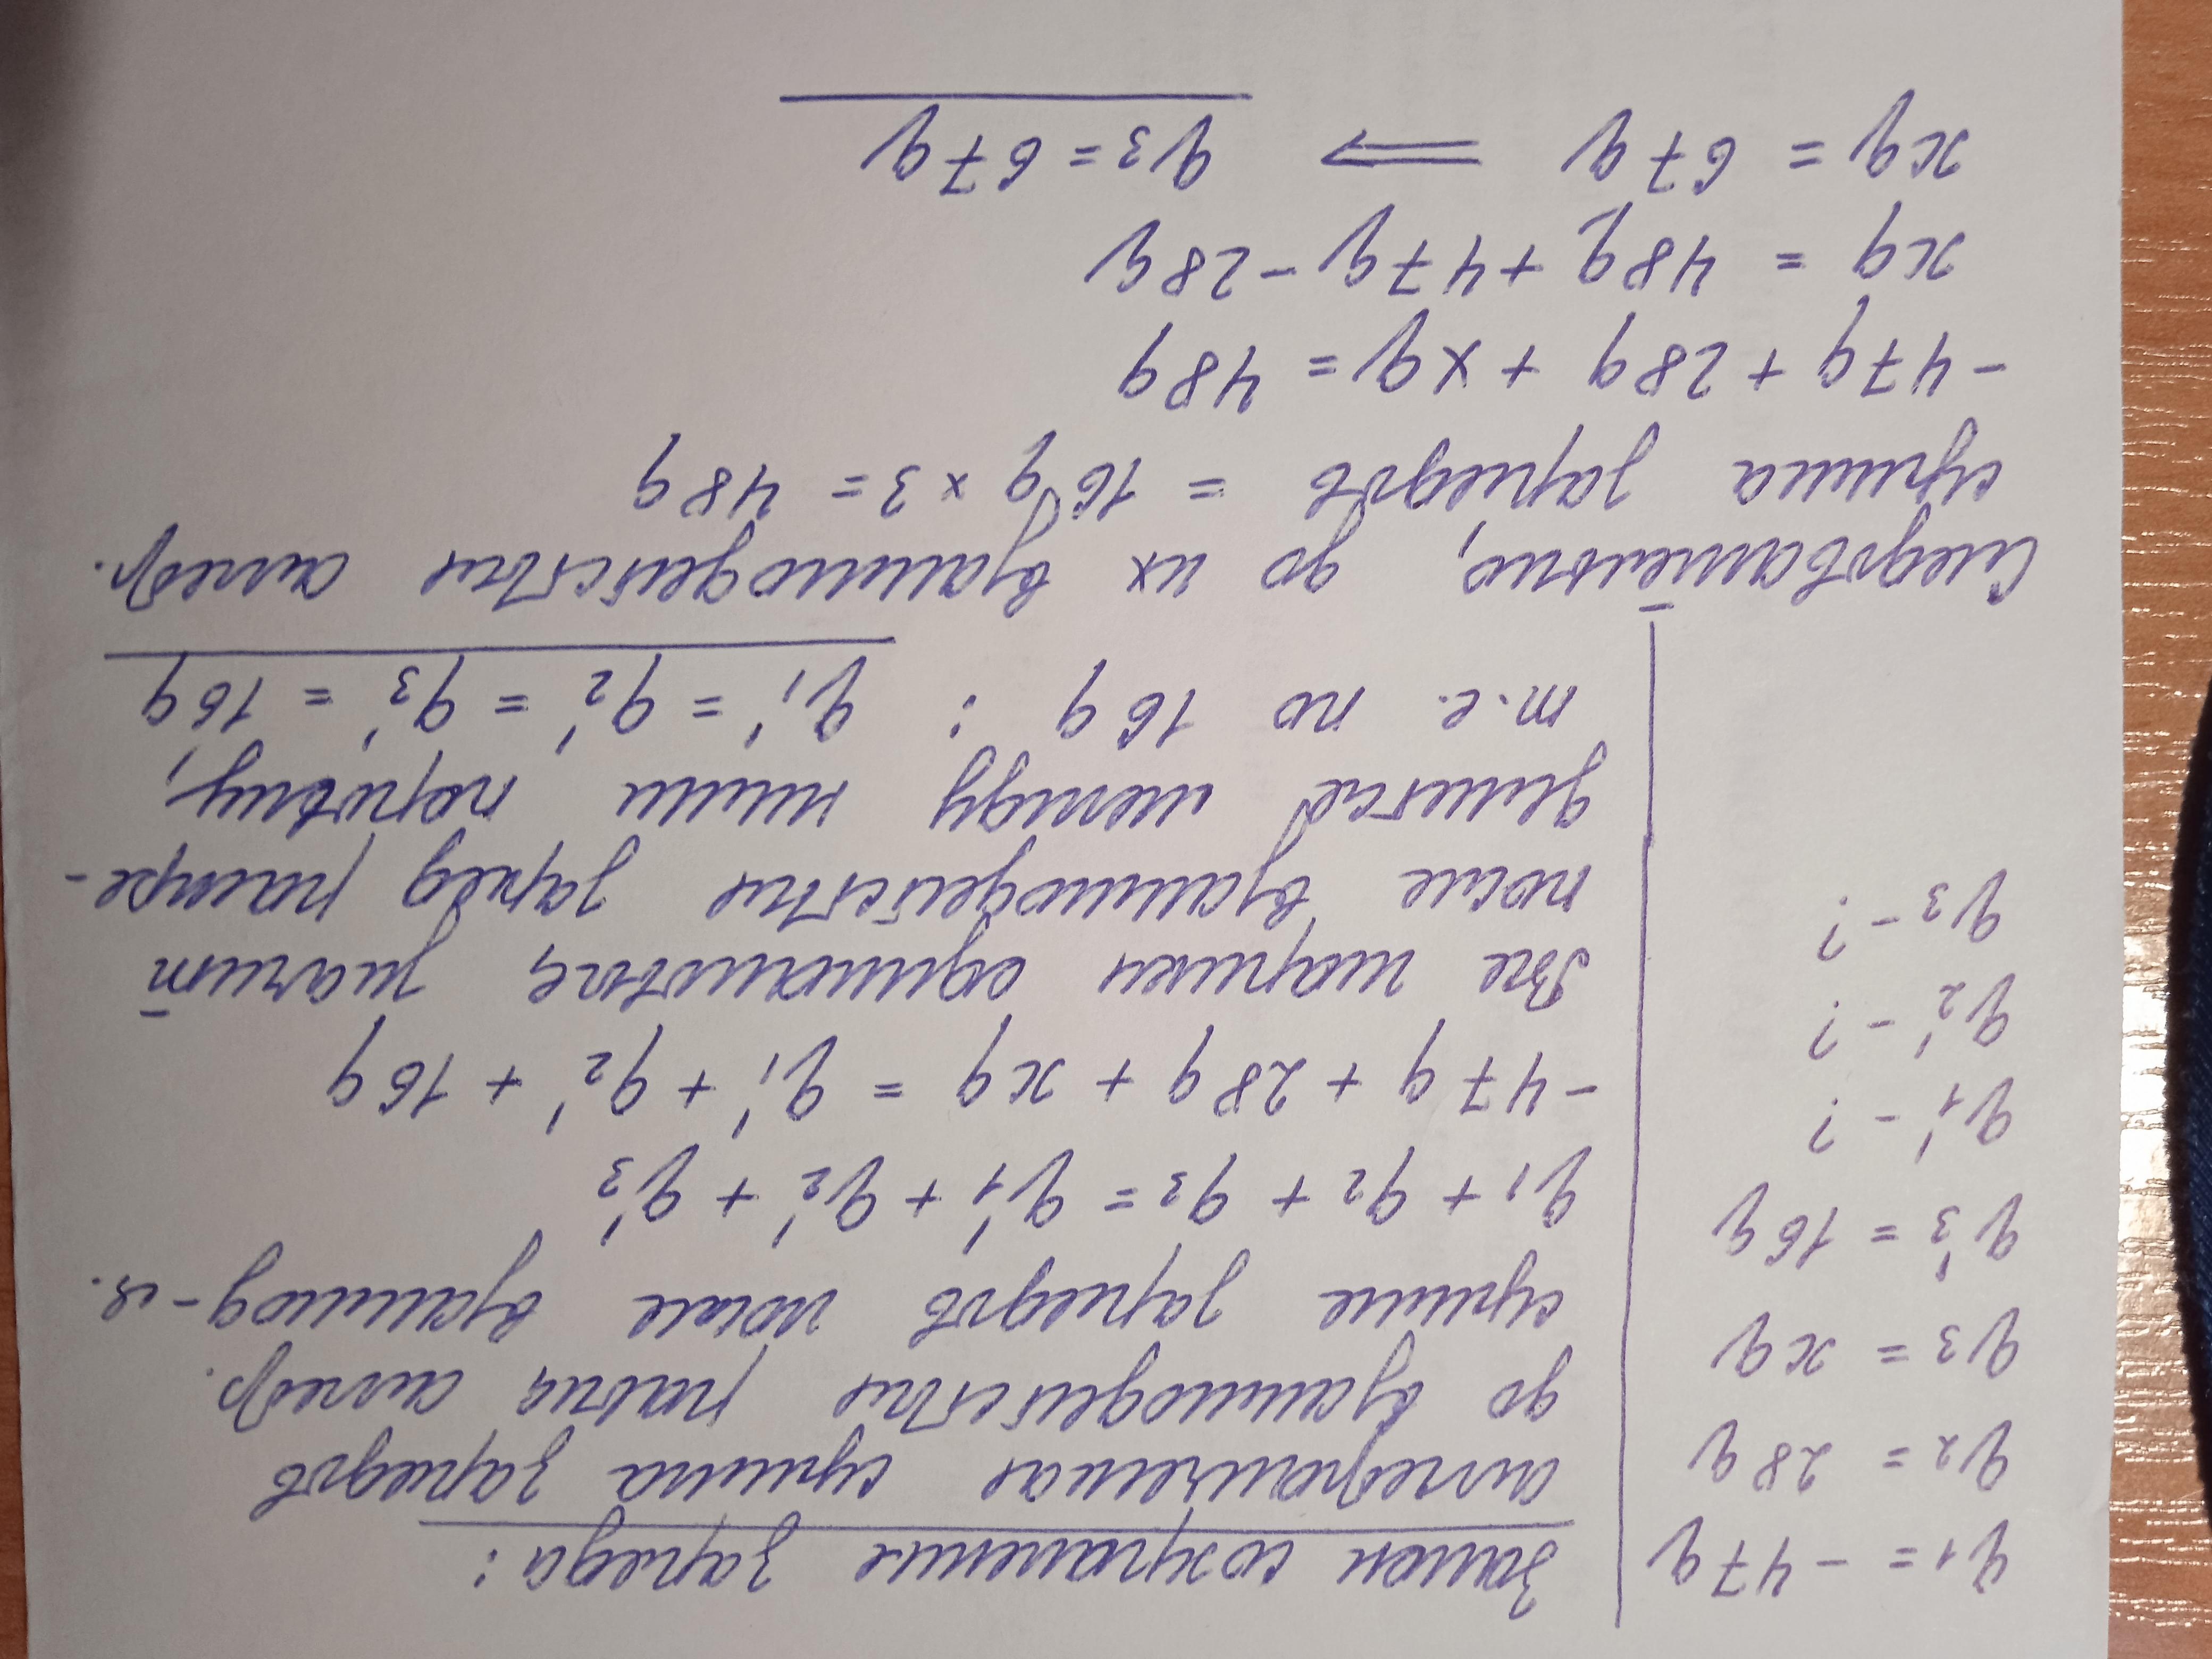 q1 = -47q
q2 = 28q
q3 = xq
q'3 = 16q
q'1 - ?
q'2 - ?
q3 - ?
Закон сохранения заряда:
алгебраическая сумма зарядов
до взаимодействия равна алгебр.
сумме зарядов после взаимод-я.
q1 + q2 + q3 = q'1 + q'2 + q'3
-47q + 28q + xq = q'1 + q'2 + 16q
Все шарики одинаковые, значит
после взаимодействия заряд распре-
делился между ними поровну,
т.е. по 16q : q'1 = q'2 = q'3 = 16q
Следовательно, до их взаимодействия алгебр.
сумма зарядов = 16q × 3 = 48q
-47q + 28q + xq = 48q
xq = 48q + 47q - 28q
xq = 67q ⟹ q3 = 67q